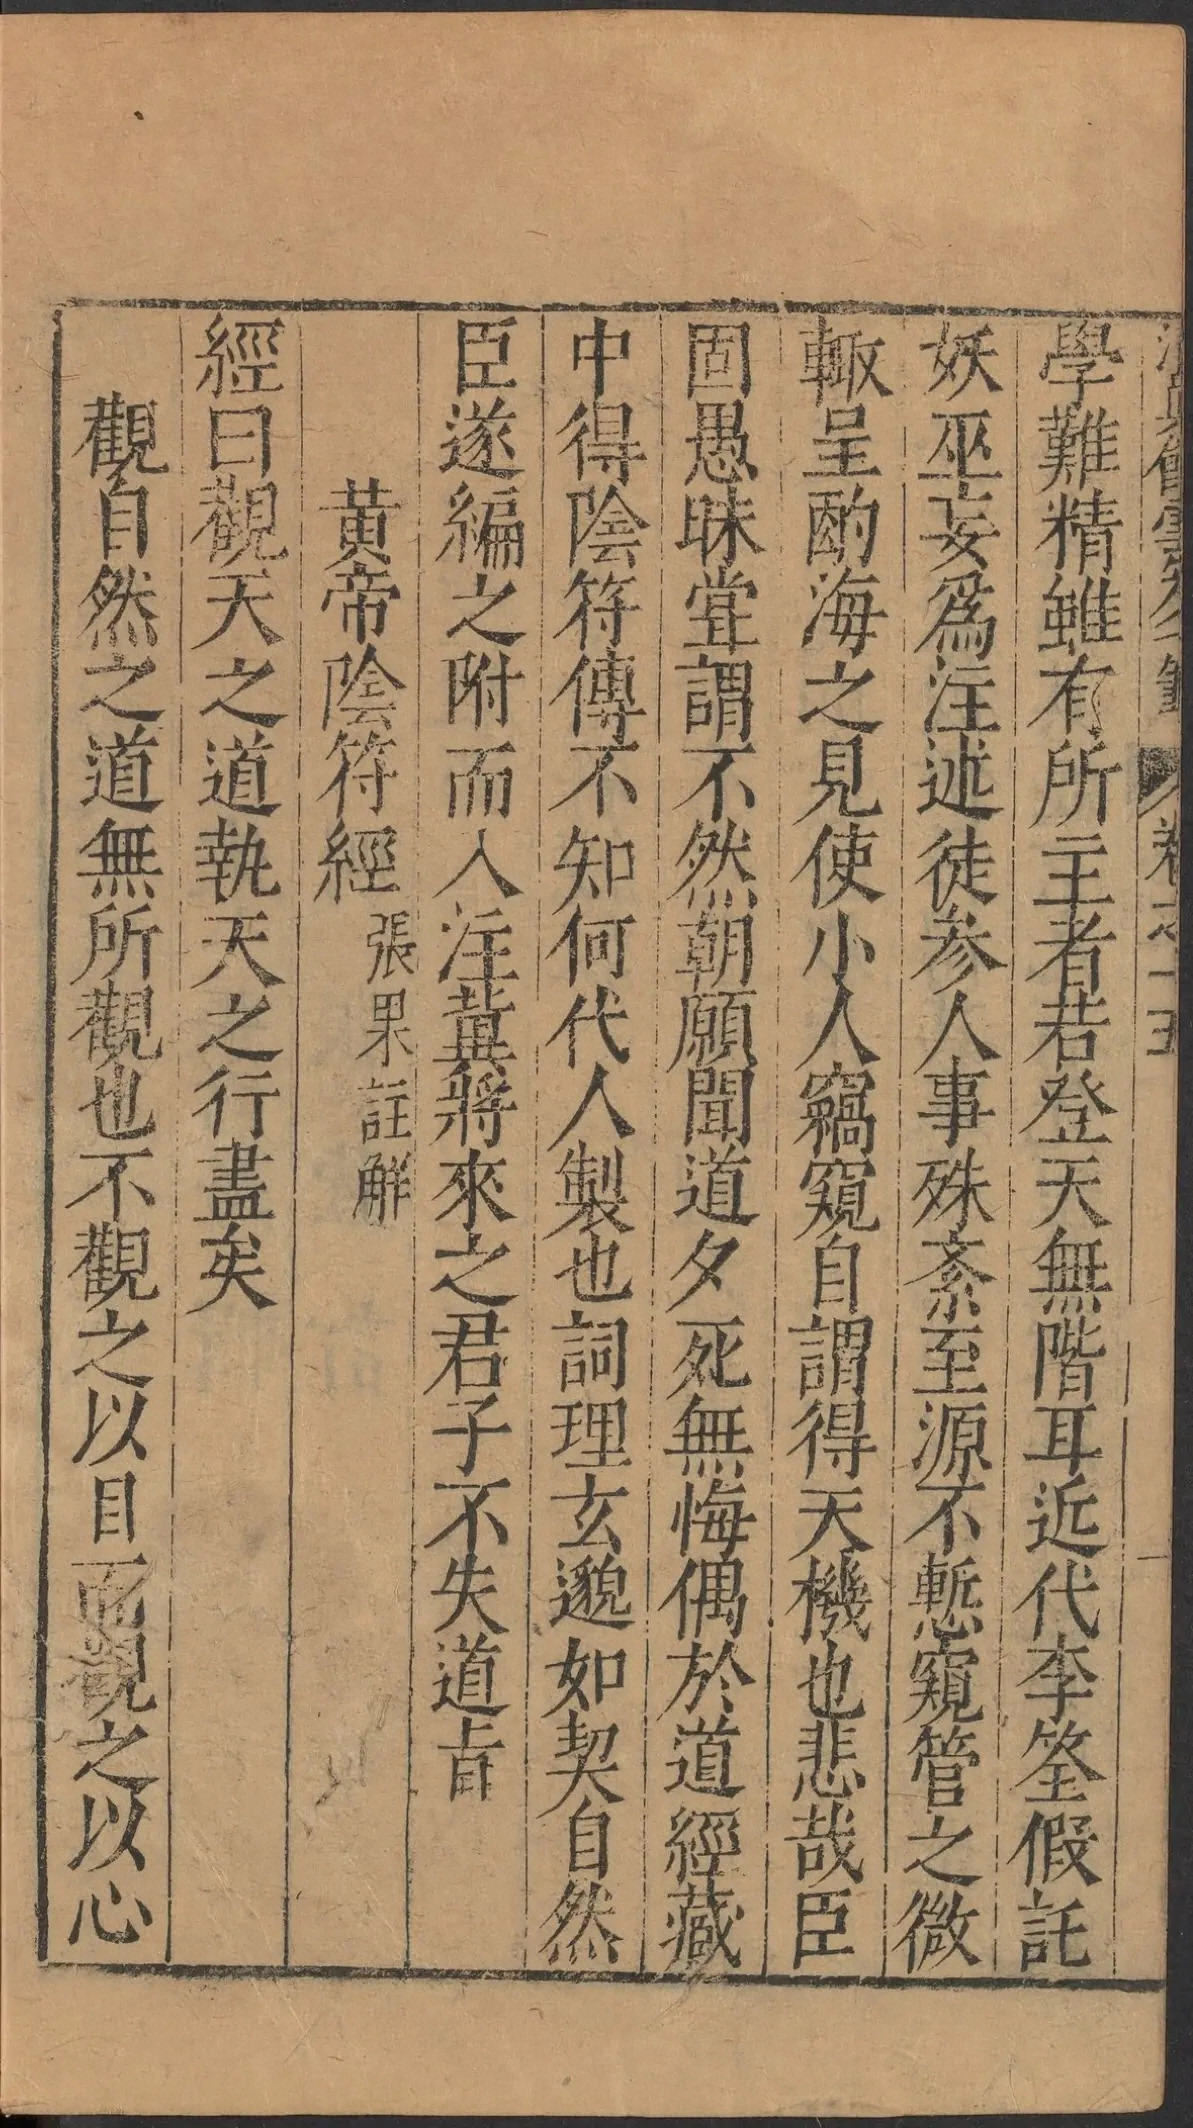 卷之十五
學難精雖有所主者若登天無階耳近代李筌假託
妖巫妄爲注述徒參人事殊紊至源不慙窺管之微
輙呈酌海之見使小人竊窺自謂得天機也悲哉臣
固愚昧甞謂不然朝願聞道夕死無悔偶於道經藏
中得陰符傳不知何代人製也詞理玄邈如契自然
臣遂編之附而入注冀將來之君子不失道㫖
黃帝陰符經 張果註觧
經曰觀天之道執天之行盡矣
觀自然之道無所觀也不觀之以目而觀之以心